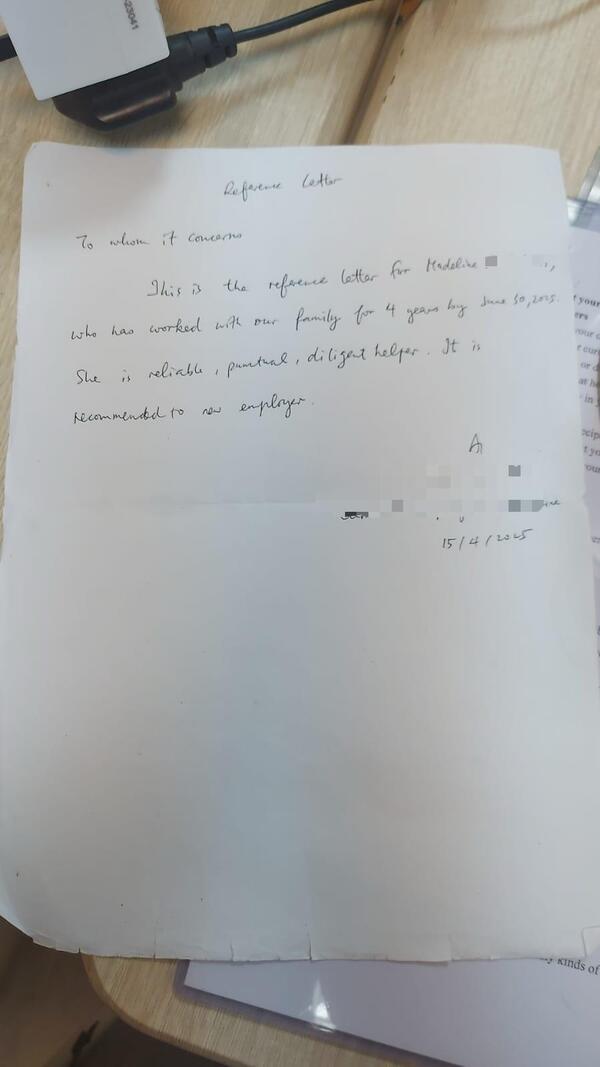 23041
Reference Letter
To whom it concerns
This is the reference letter for Madeline
who has worked with our family for 4 years by June 30, 2025.
She is reliable, punctual, diligent helper. It is
recommended to new employer.
15/4/2025
your
ers
your c
or d
at he
in
kinds of